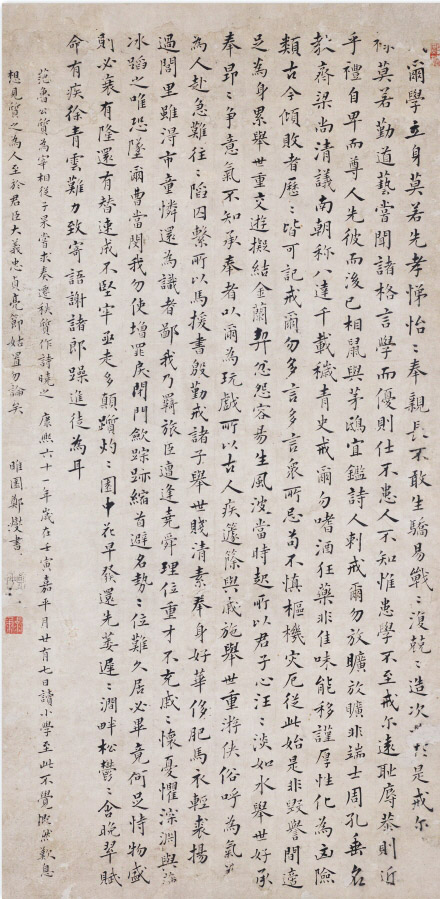 爾學立身莫若先孝悌怡〻奉親長不敢生驕易戰〻復兢〻造次必於是戒尔
禄莫若勤道藝嘗聞諸格言學而優則仕不患人不知惟患學不至戒尔遠耻辱恭則近
乎禮自卑而尊人先彼而後已相鼠與茅鴟宜鑑詩人刺戒爾勿放曠放曠非端士周孔垂名
教齊梁尚清議南朝称八達千載穢青史戒爾勿嗜酒狂藥非佳味能移謹厚性化為凶險
類古今傾敗者歷〻皆可記戒爾勿多言多言衆所忌苟不慎樞機灾厄從此始是非毀譽間適
足為身累舉世重交遊擬結金蘭契忿怨容易生風波當時起所以君子心汪〻淡如水舉世好承
奉昂〻争意氣不知承奉者以爾為玩戲所以古人疾籧篨與戚施舉世重游俠俗呼為氣
為人赴急難往〻陷囚縶所以馬援書殷勤戒諸子舉世賤清素奉身好華侈肥馬衣輕裘揚
過閭里雖得市童憐還為識者鄙我乃羇旅臣遭逢堯舜理位重才不充戚〻懷憂懼深淵與
冰蹈之唯恐墜爾曹當閔我勿使增罪戾閉門歛踪跡縮首避名勢〻位難久居必畢竟何足恃物盛
則必衰有隆還有替速成不堅牢亟走多顛躓灼〻園中花早發還先萎遲〻澗畔松鬱〻含晚翠賦
命有疾徐青雲難力致寄語謝諸郎躁進徒為耳
范魯公質為宰相從子杲嘗求奏遷秩質作詩曉之 康熙六十一年歲在壬寅嘉平月廿有七日讀小學至此不覺慨然歎息
想見質之為人至於君臣大義忠貞亮節姑置勿論矣 睢園鄭燮書